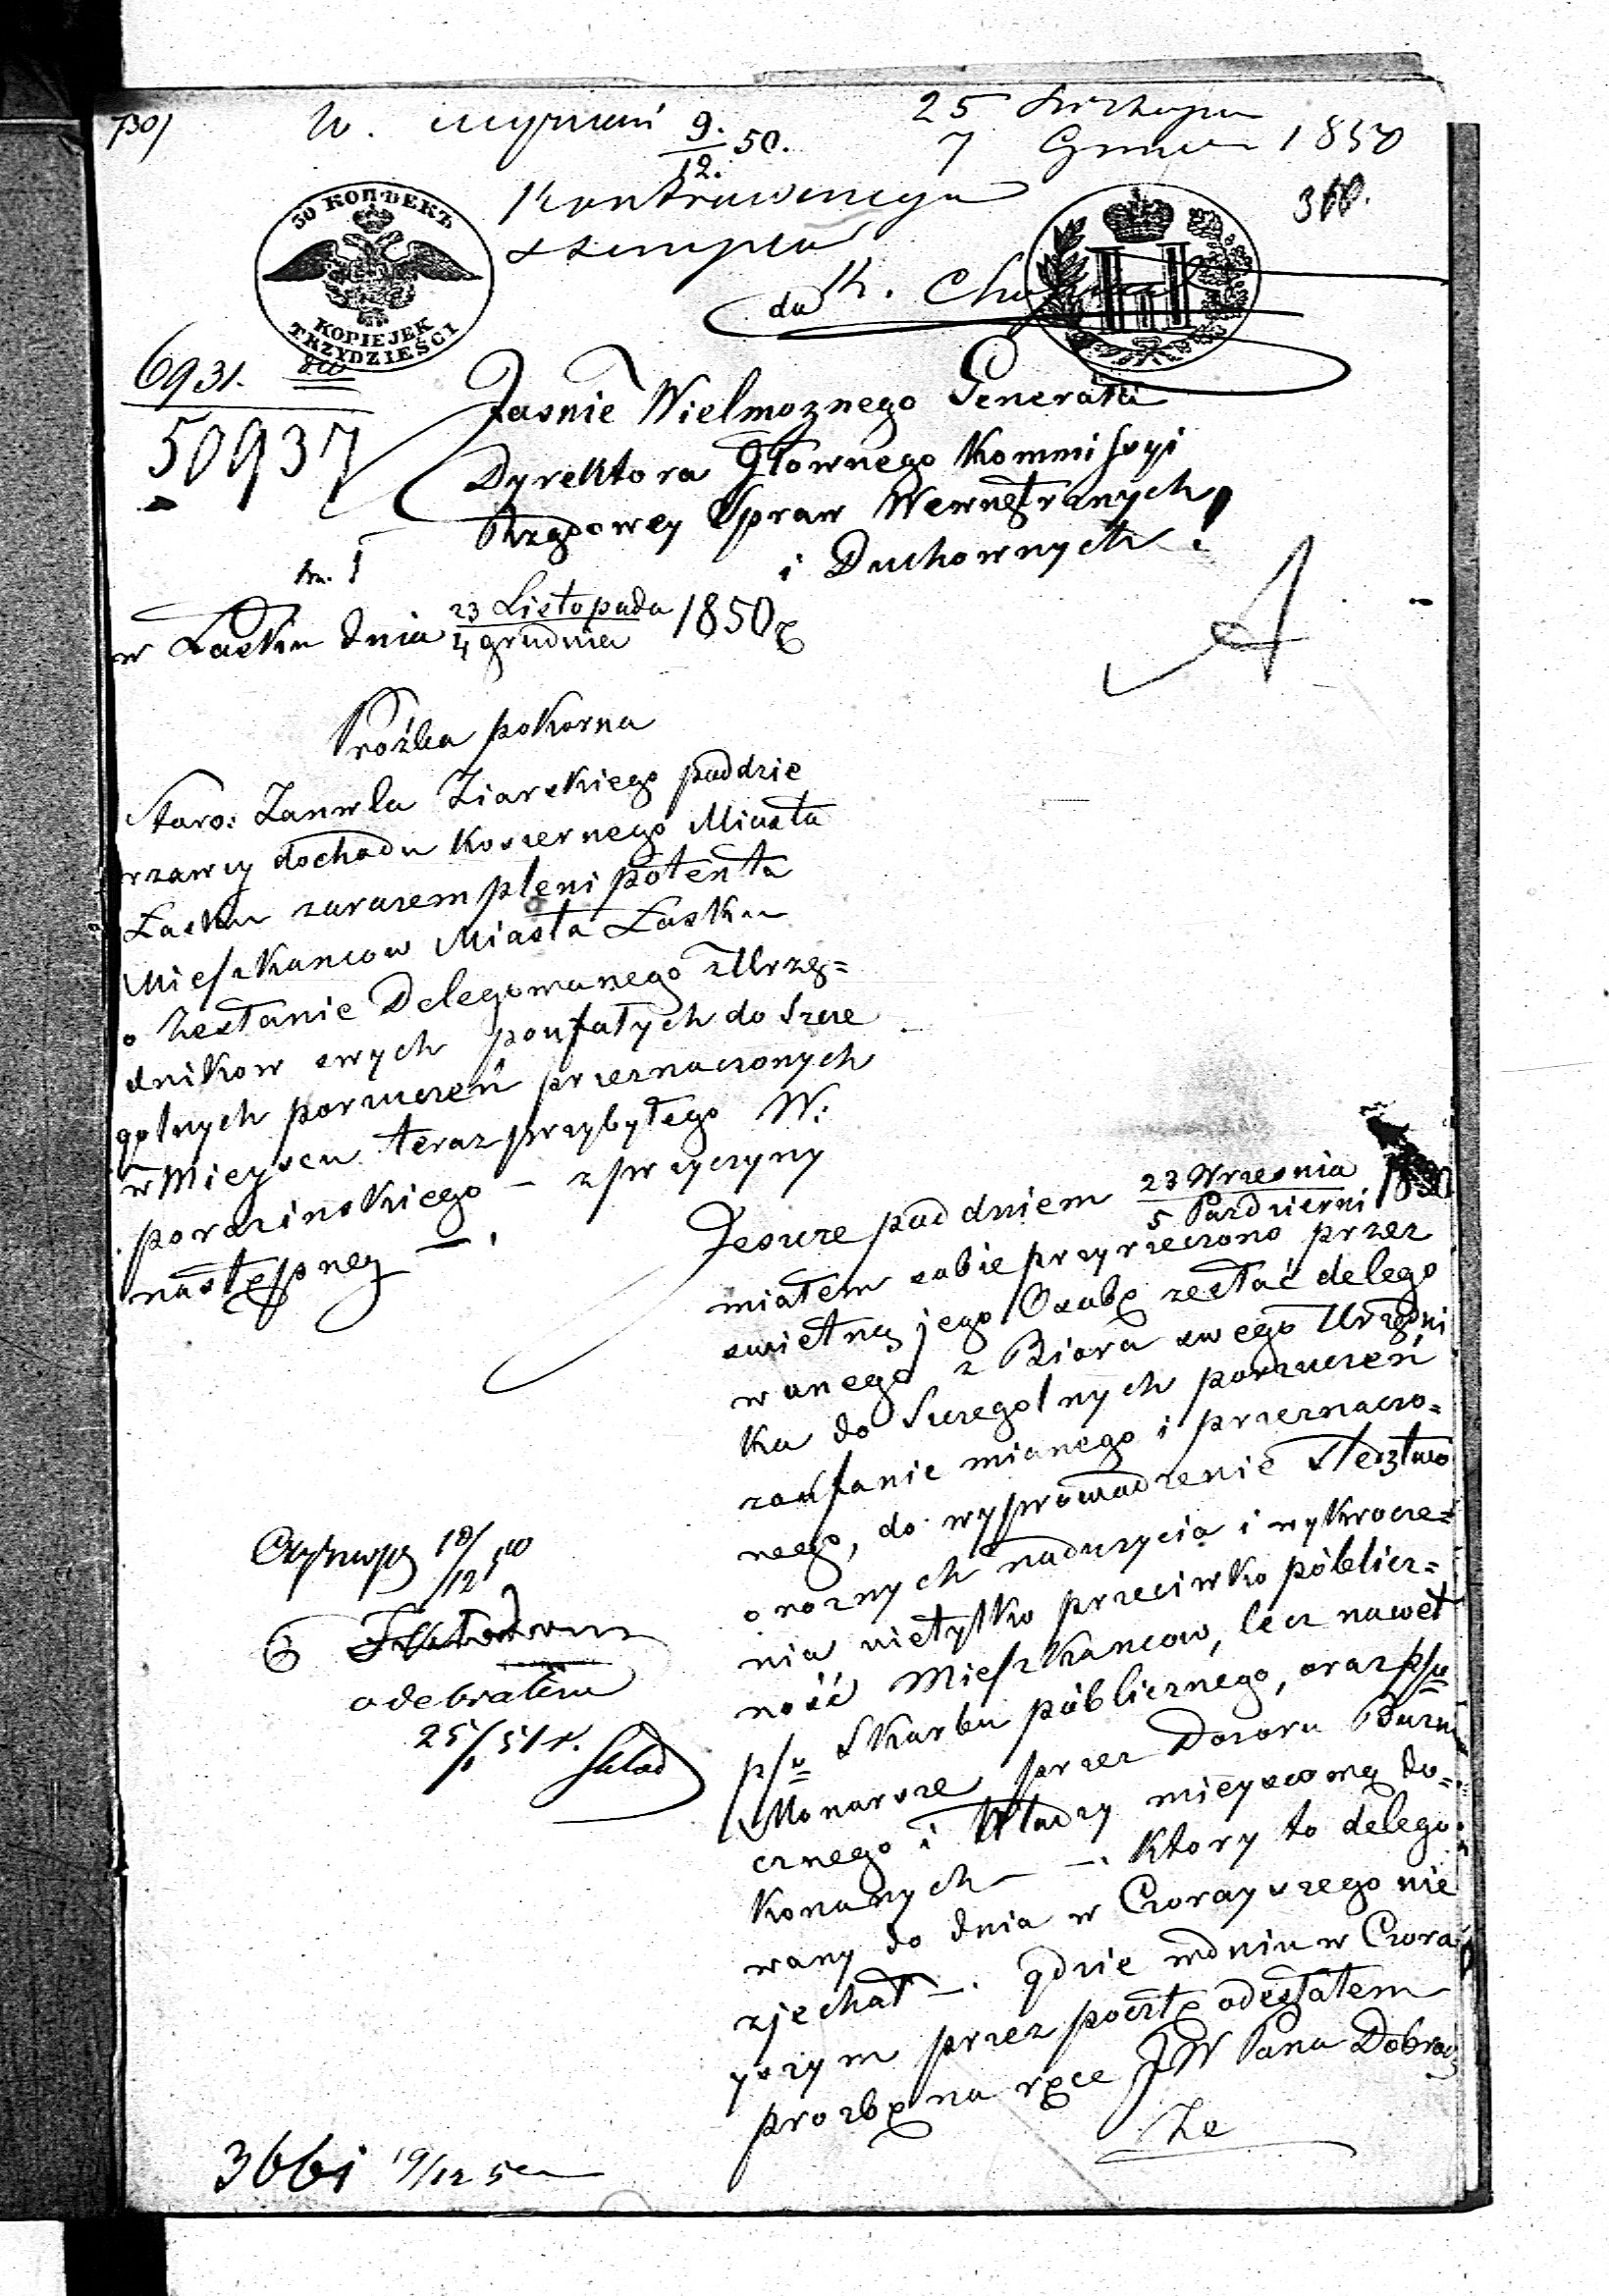 25
7 1850
9.
12. 50.
310.
30 КОПѢЕКЪ
KOPIEJEK
TRZYDZIEŚCI
6931.
50937
Jasnie Wielmoznego Generała
Dyrektora Głownego Kommissyi
Rządowey Spraw Wewnętrznych
i Duchownych!
w Łasku dnia 23 Listopada
4 grudnia 1850 
Prożba pokorna
Staro: Zanwla Ziarskiego poddzie
rzawcy dochodu Koszernego Miasta
Łasku zarazem plenipotenta
Mieszkancow Miasta Łasku
o Zesłanie Delegowanego z Urzę=
dnikow swych poufałych do Szcze
golnych poruczeń przeznaczonych
w Mieyscu teraz przybyłego W:
porazinskiego – z przyczyny
następney –.
Jeszcze pod dniem 23 Wrzesnia
5 Pazdzierni 1850
miałem sobie przyrzeczono przez
swietną jego Osobę zesłać delego
wanego z Biora swego Urzędni
ka do Szczegolnych poruczeń
zaufanie mianego i przeznaczo=
nego, do wyprowadzenie sledztwo
o roznych naduzycia i wykrocze=
nia nietylko przeciwko póblicz=
ność Mieszkancow, lecz nawet
p/w Skarbu póblicznego, oraz p/w
Monarsze przez Dozoru Bużni
cznego i Władzy mieyscową do=
konanych –. Ktory to delego
wany do dnia w Czorayszego nie
zjechał –. gdzie w dniu w Czora
yszym przez pocztę odesłałem
prozbę na ręce JW Pana Dobrodz
Ze
odebrałem
25/1 51 r.
3661 19/12 50